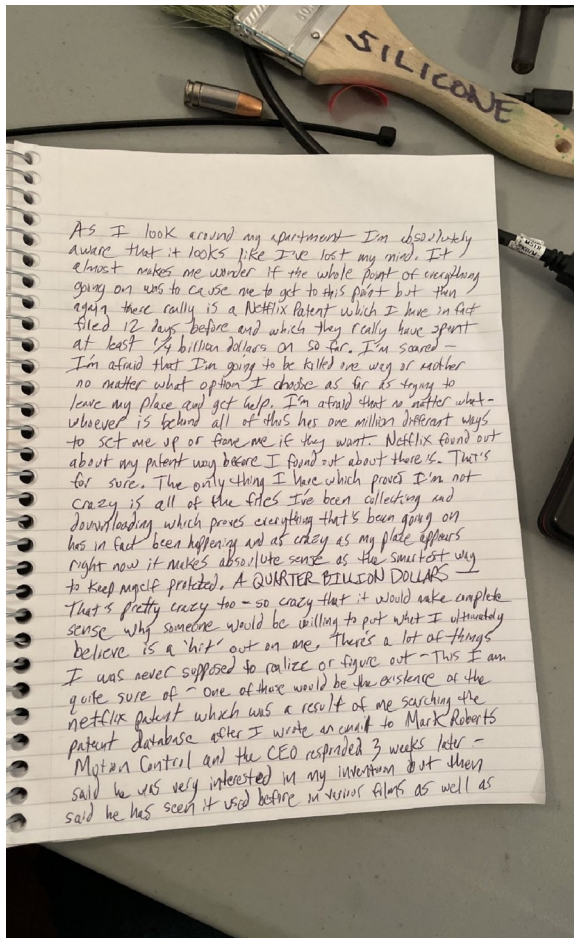 SILICONE
As I look around my apartment I'm absolutely
aware that it looks like I've lost my mind. It
almost makes me wonder if the whole point of everything
going on was to cause me to get to this point but then
again there really is a Netflix Patent which I have in fact
filed 12 days before and which they really have spent
at least 1/4 billion dollars on so far. I'm scared –
I'm afraid that I'm going to be killed one way or another
no matter what option I choose as far as trying to
leave my place and get help. I'm afraid that no matter what –
whoever is behind all of this has one million different ways
to set me up or frame me if they want. Netflix found out
about my patent way before I found out about theirs. That's
for sure. The only thing I have which proves I'm not
crazy is all of the files I've been collecting and
downloading which proves everything that's been going on
has in fact been happening and as crazy as my place appears
right now it makes absolute sense as the smartest way
to keep myself protected. A QUARTER BILLION DOLLARS –
That's pretty crazy too – so crazy that it would make complete
sense why someone would be willing to put what I ultimately
believe is a 'hit' out on me. There's a lot of things
I was never supposed to realize or figure out – This I am
quite sure of – One of those would be the existence of the
netflix patent which was a result of me searching the
patent database after I wrote an email to Mark Roberts
Motion Control and the CEO responded 3 weeks later –
said he was very interested in my invention but then
said he has seen it used before in various films as well as